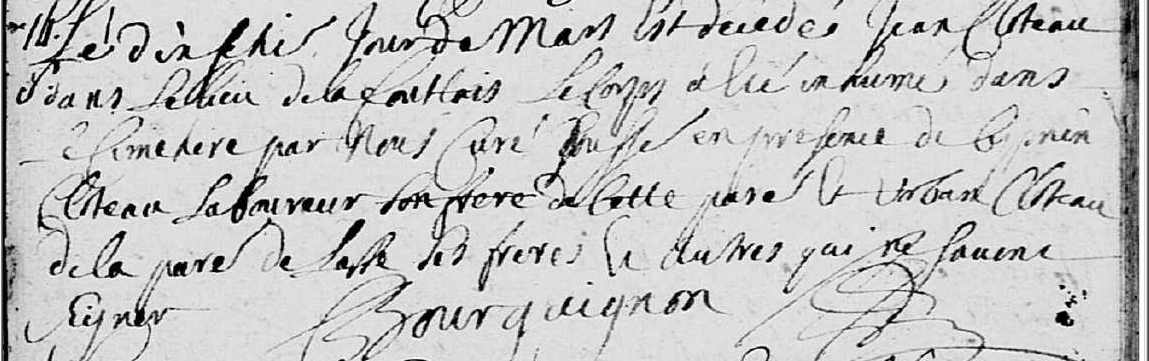 Le dix huis Jour de Mars Est décédé Jean Cloteau
dans Le lieu de la Le Corps a Eté inhumé dans
Cimetiere par Nous Curé en presence de
Cloteau Laboureur Son frere de Cette paré Et Urban Cloteau
de la paré de Lasse Ses freres & autres qui ne Savent
Signer Bourguignon